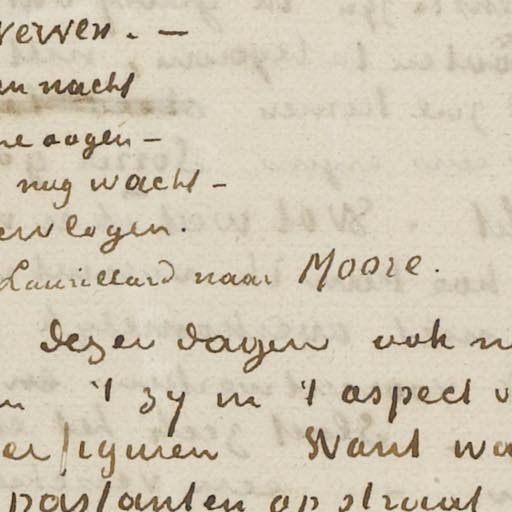 verven. —
en nacht
ne oogen —
nog wacht –
ervlogen.
Laurillard naar Moore.
dezer dagen ook n
n 't zy in 't aspect v
er figuren Want wa
passanten op straat